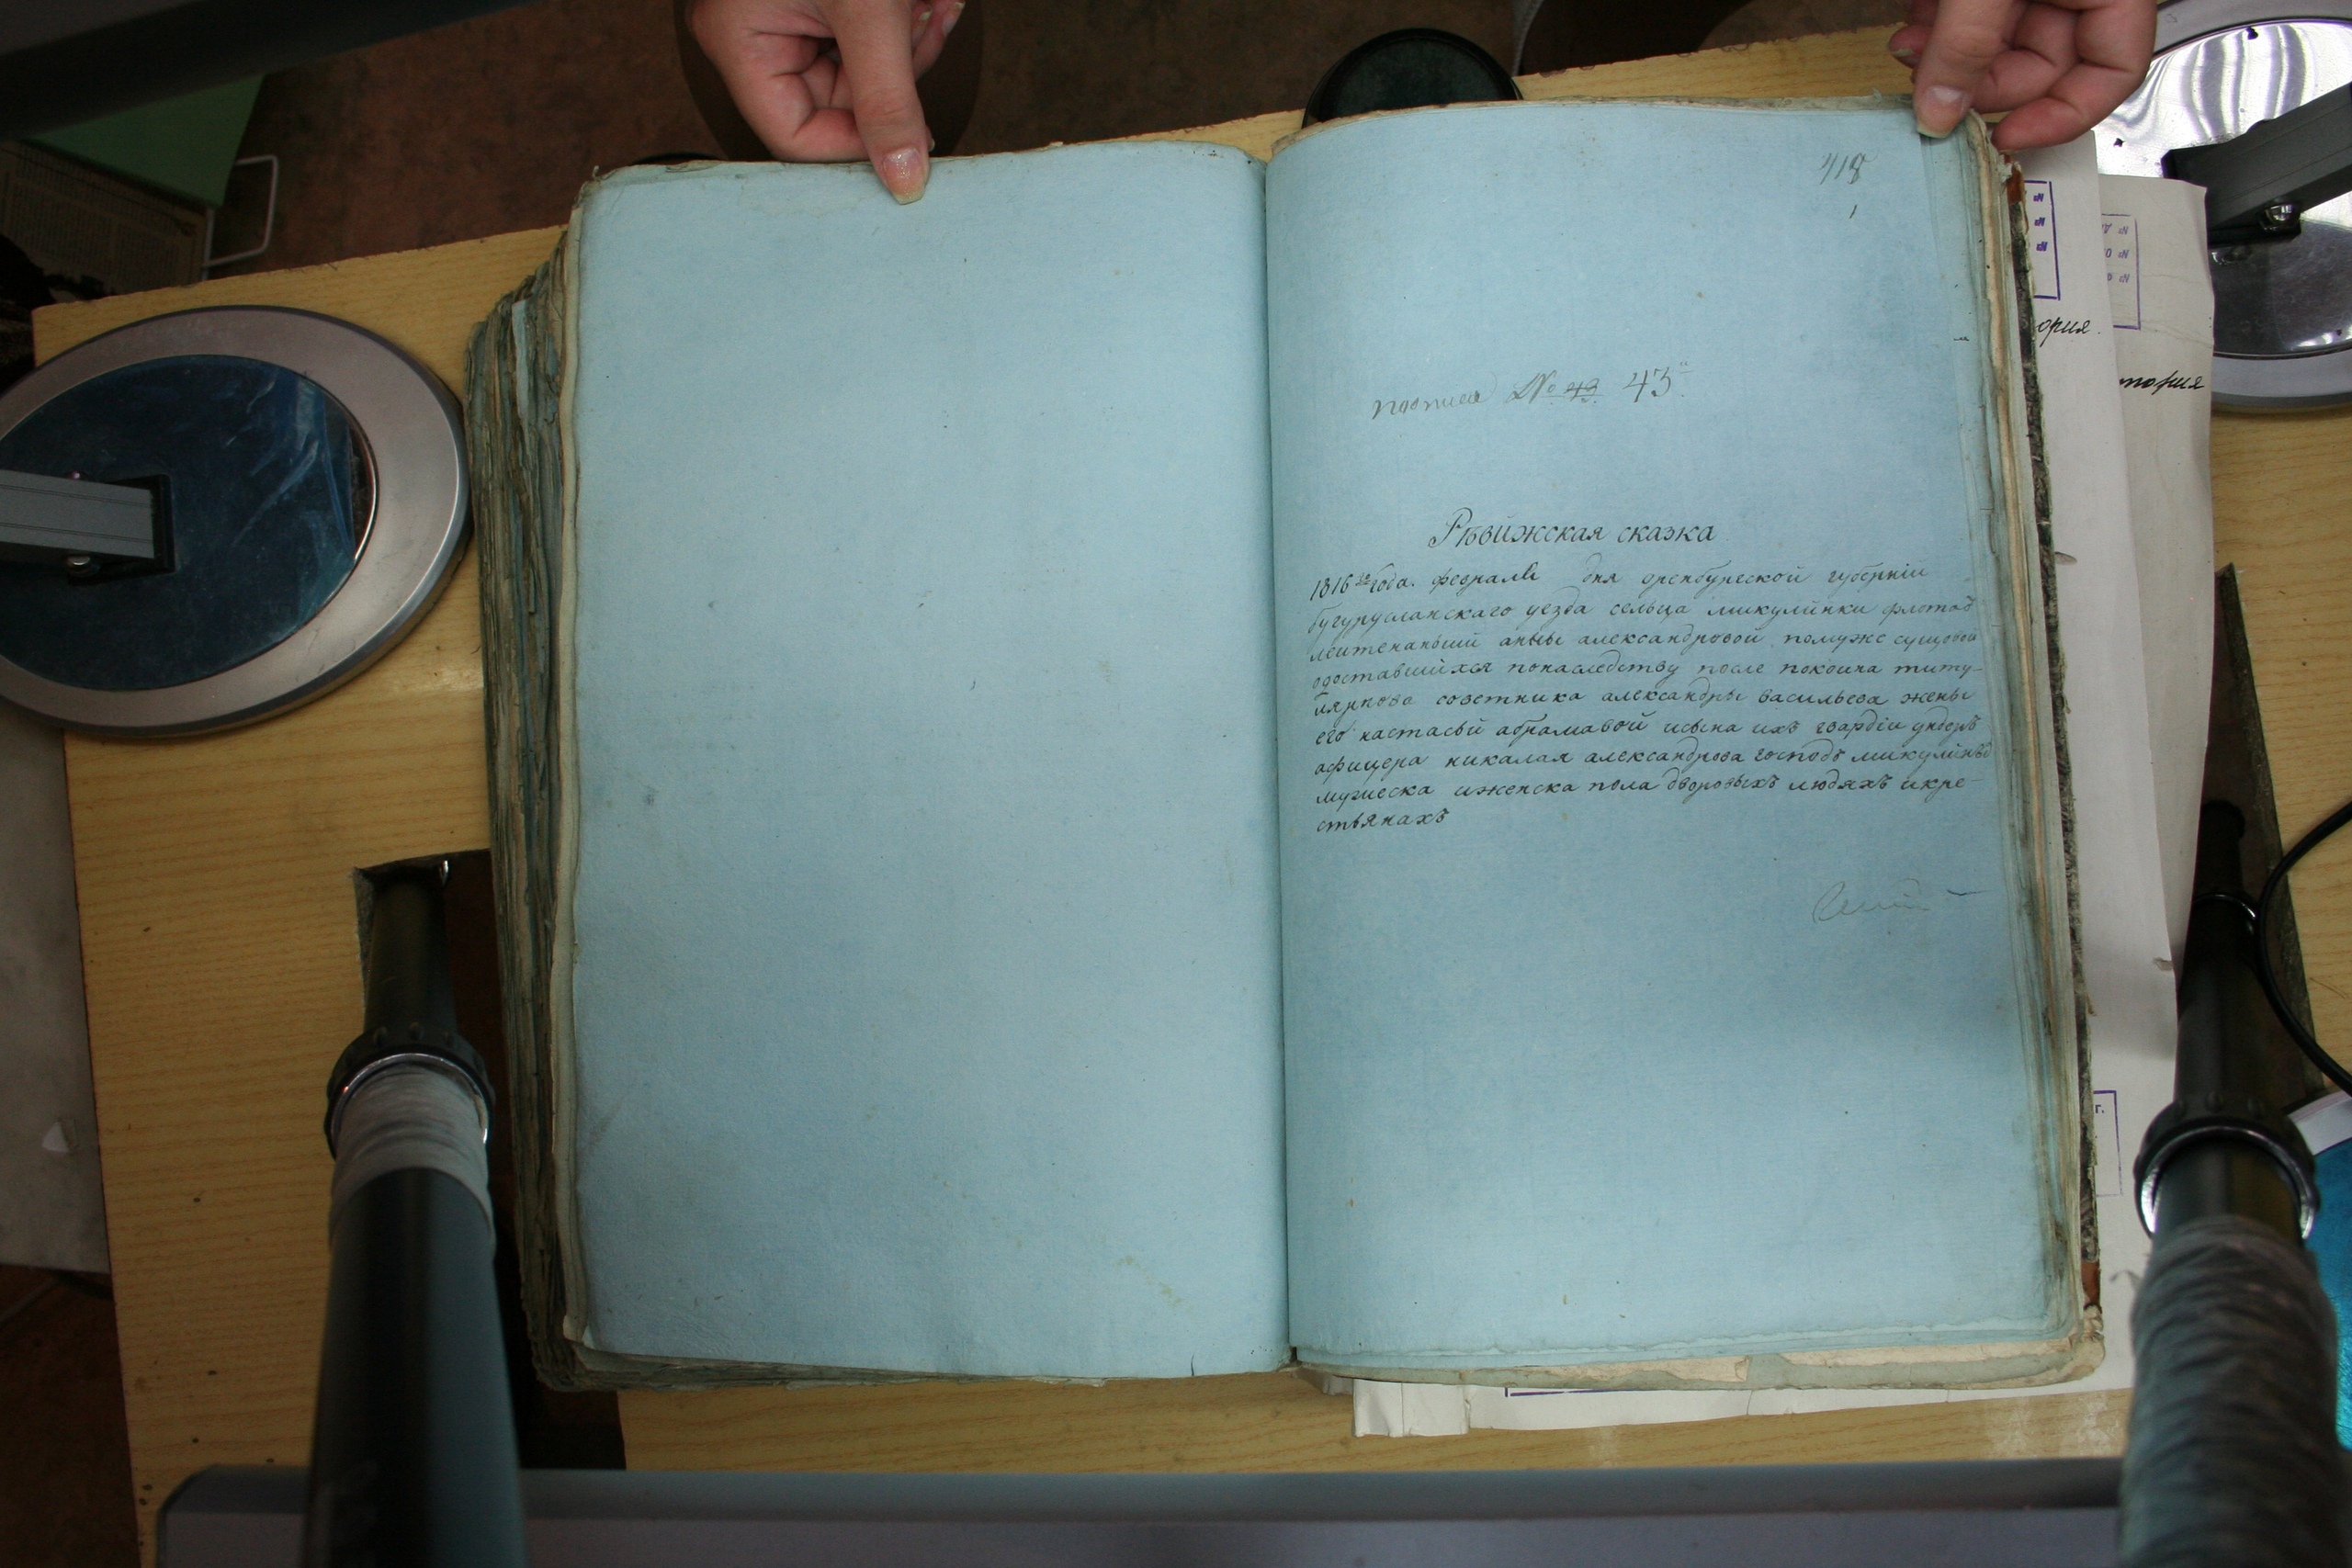 418
1
пописи № 43. 43й
Рѣвижская сказка
1816го года. февраля дня оренбургской губерніи
бугурусланскаго уезда сельца микулинки флота
леитенантши анны александровой помуже сущовой
одоставшихся понаследству после покоина титу-
лярнова советника александры васильева жены
его настасьи абрамавой исына ихъ гвардіи ундеръ
афицера никалая александрова господъ микулиныъ
мужеска иженска пола дворовыхъ людяхъ икре-
стьянахъ
ория.
тория